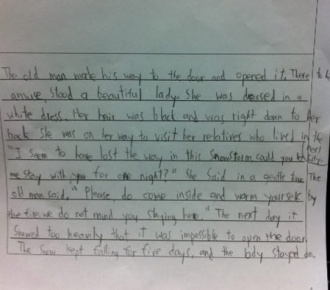 The old man made his way to the door and opened it. There to
stood a beautiful lady. She was dressed in a
white dress. Her hair was black and was right down to her
back. She was on her way to visit her relatives who lived in the next
"I seem to have lost the way in this snowstorm could you
me stay with you for one night?" She said in a gentle tone. The
old man said, "Please do come inside and warm yourself by
the fire, we do not mind you staying here." The next day it
snowed too heavily that it was impossible to open the door.
The snow kept falling for five days, and the lady stayed on.